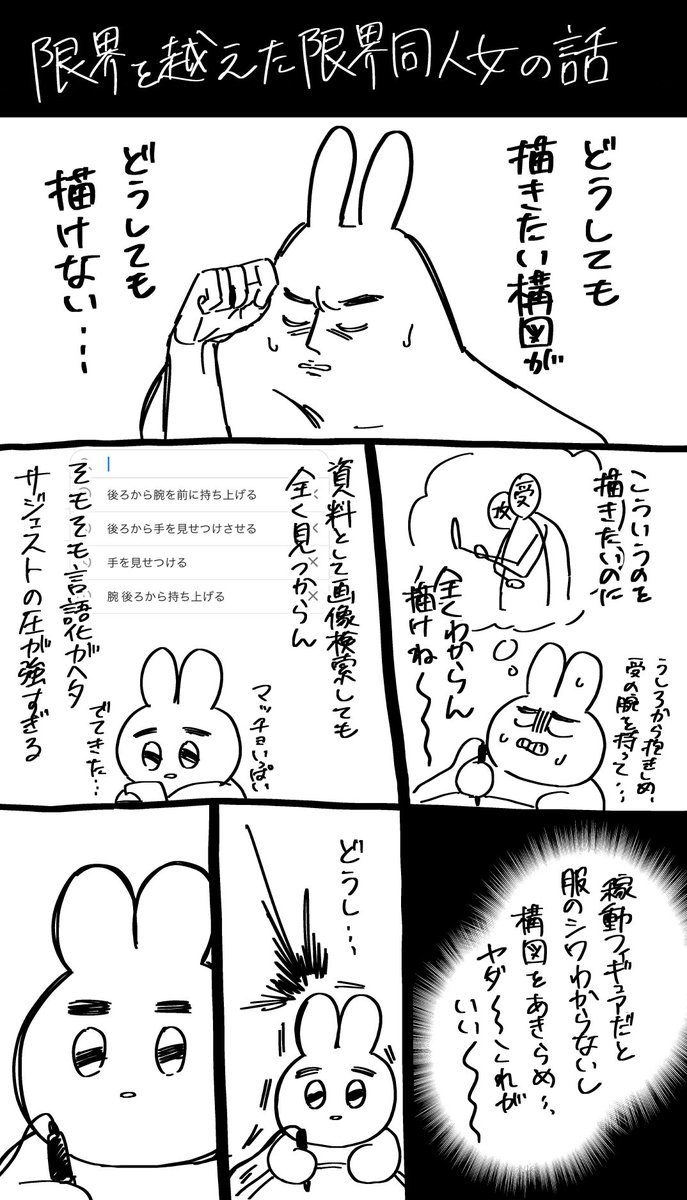 限界を越えた限界同人女の話
どうしても
描きたい構図が
どうしても
描けない…
こういうのを
描きたいのに
受
攻
うしろから抱きしめ、
受の腕を持って…
全くわからん
描けね〜〜
資料として画像検索しても
全く見つからん
後ろから腕を前に持ち上げる
後ろから手を見せつけさせる
手を見せつける
腕 後ろから持ち上げる
そもそも言語化がヘタ
サジェストの圧が強すぎる
マッチョいっぱい
でてきた…
稼動フィギュアだと
服のシワわからないし
構図をあきらめ…、
ヤダ〜〜これが
いい〜〜〜
どうし…